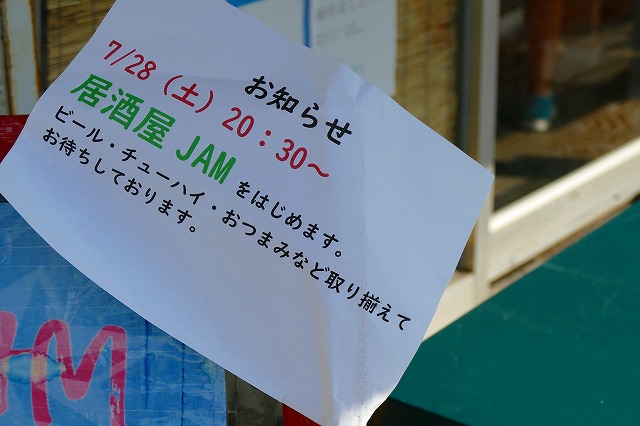 お知らせ
7/28（土）20：30～
居酒屋 JAM をはじめます。
ビール・チューハイ・おつまみなど取り揃えて
お待ちしております。